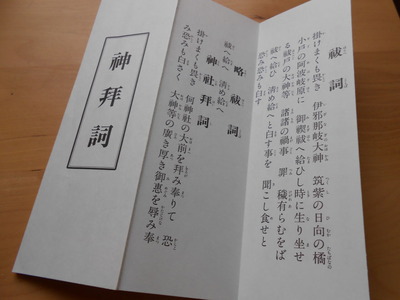 祓詞
掛けまくも畏き 伊邪那岐大神 筑紫の日向の橘
小戸の阿波岐原に 御禊祓へ給ひし時に生り坐せ
る祓戸の大神等 諸諸の禍事 罪 穢有らむをば
祓へ給ひ 清め給へと白す事を 聞こし食せと
恐み恐みも白す
略祓詞
祓へ給へ 清め給へ
神社拜詞
掛けまくも畏き 何神社の大前を拝み奉りて 恐
み恐みも白さく 大神等の廣き厚き御恵を辱み奉
神拜詞